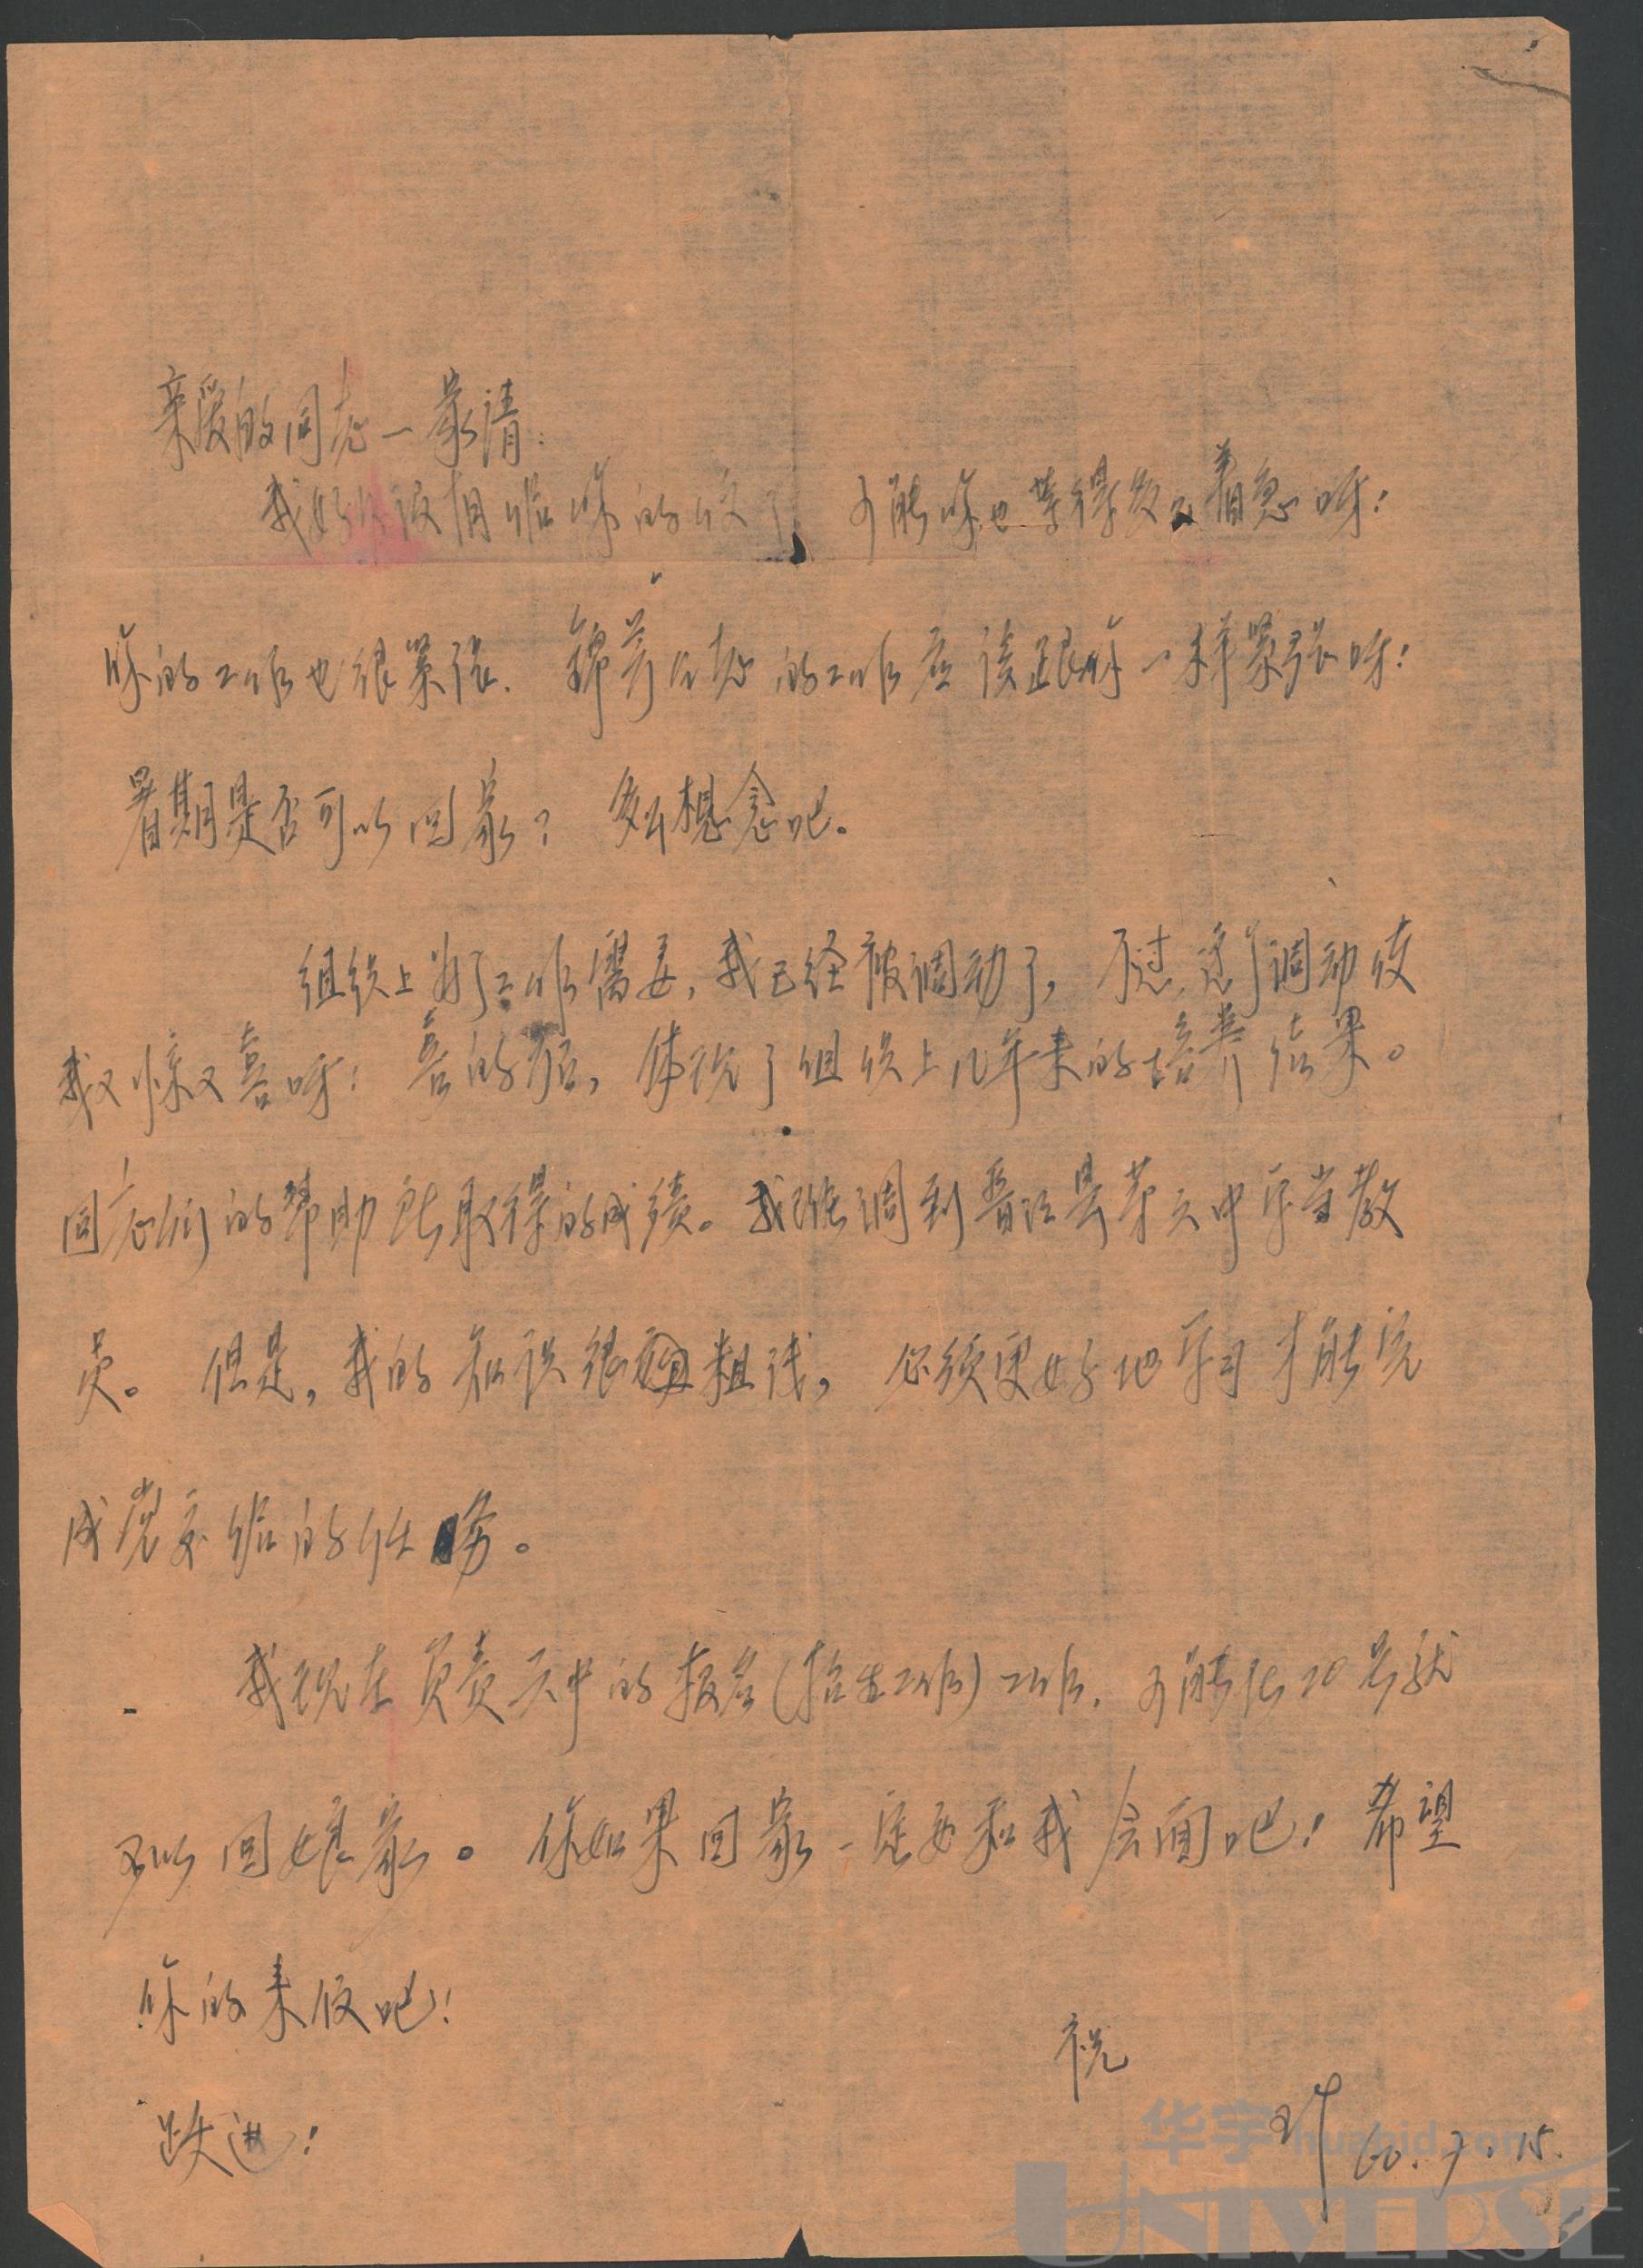 亲爱的同志一家清:
我好久没有给你的信了,可能你也等得发急着急呀!
你的工作也很紧张.锦芳同志的工作应该跟你一样紧张呀!
暑期是否可以回家?多么想念吧。
组织上为了工作需要,我已经被调动了,不过,这个调动使
我又惊又喜呀!喜的是,体现了组织上几年来的培养结果。
同志们的帮助能取得的成绩。我已调到晋江县第六中学当教
员。但是,我的知识很粗浅,必须更好地学习才能完
成党交给的任务。
我现在负责六中的报名(招生工作)工作.可能化20号就
可以回娘家。你如果回家一定要和我会面吧!希望
你的来信吧!
祝
跃进!
60.7.15.
华宇 huabid.com
UNIVERSE